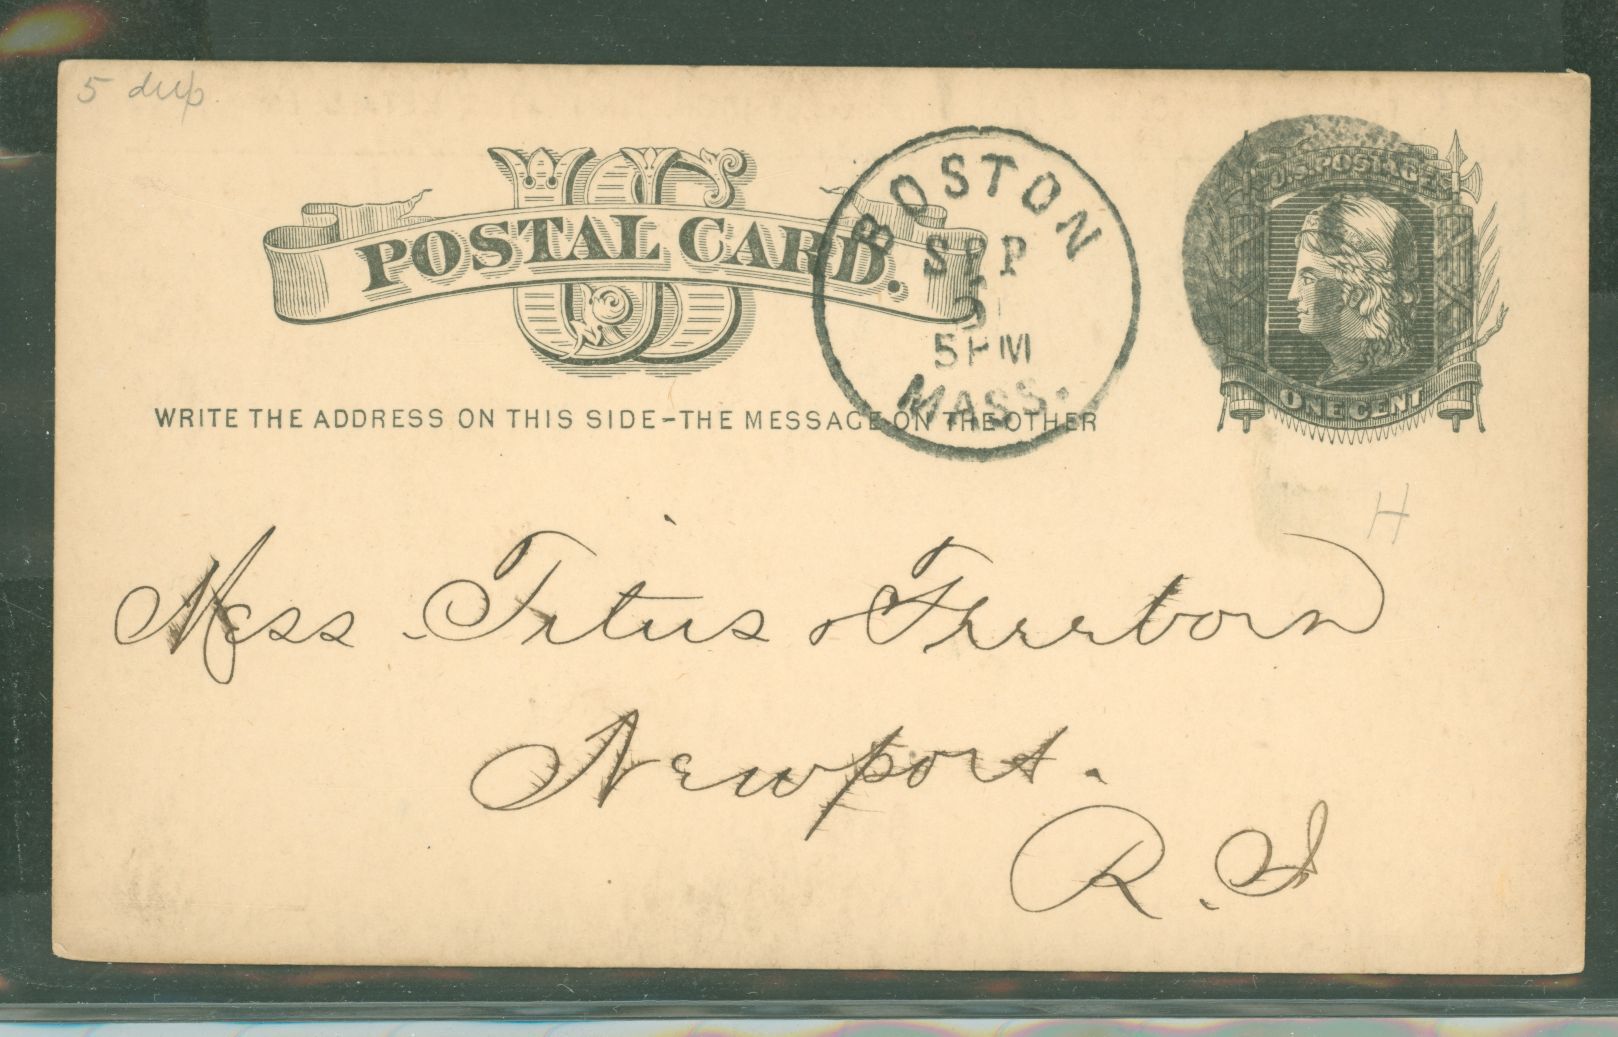 5 dup
US
POSTAL CARD.
BOSTON
SEP
5 PM
MASS.
U.S. POSTAGE
ONE CENT
WRITE THE ADDRESS ON THIS SIDE-THE MESSAGE ON THE OTHER
H
Mess Titus & Freeborn
Newport.
R.I